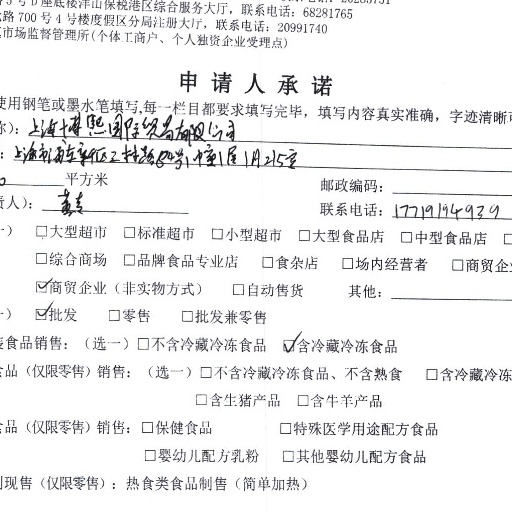 5号D座底楼洋山保税港区综合服务大厅，联系电话：20285751
路 700 号 4 号楼度假区分局注册大厅，联系电话：20991740
市场监督管理所(个体工商户、个人独资企业受理点) 68281765
申 请 人 承 诺
使用钢笔或墨水笔填写,每一栏目都要求填写完毕，填写内容真实准确，字迹清晰可
称）：上海博熙国际贸易有限公司
：上海市浦东新区
0 平方米 邮政编码：
责人）： 联系电话：17719194939
一） □大型超市 □标准超市 □小型超市 □大型食品店 □中型食品店 □
□综合商场 □品牌食品专业店 □食杂店 □场内经营者 □商贸企业
☑商贸企业（非实物方式） □自动售货 其他：
一） ☑批发 □零售 □批发兼零售
装食品销售：（选一）□不含冷藏冷冻食品 ☑含冷藏冷冻食品
食品（仅限零售）销售：（选一）□不含冷藏冷冻食品、不含熟食 □含冷藏冷冻
□含生猪产品 □含牛羊产品
食品（仅限零售）销售：□保健食品 □特殊医学用途配方食品
□婴幼儿配方乳粉 □其他婴幼儿配方食品
制现售（仅限零售）：热食类食品制售（简单加热）